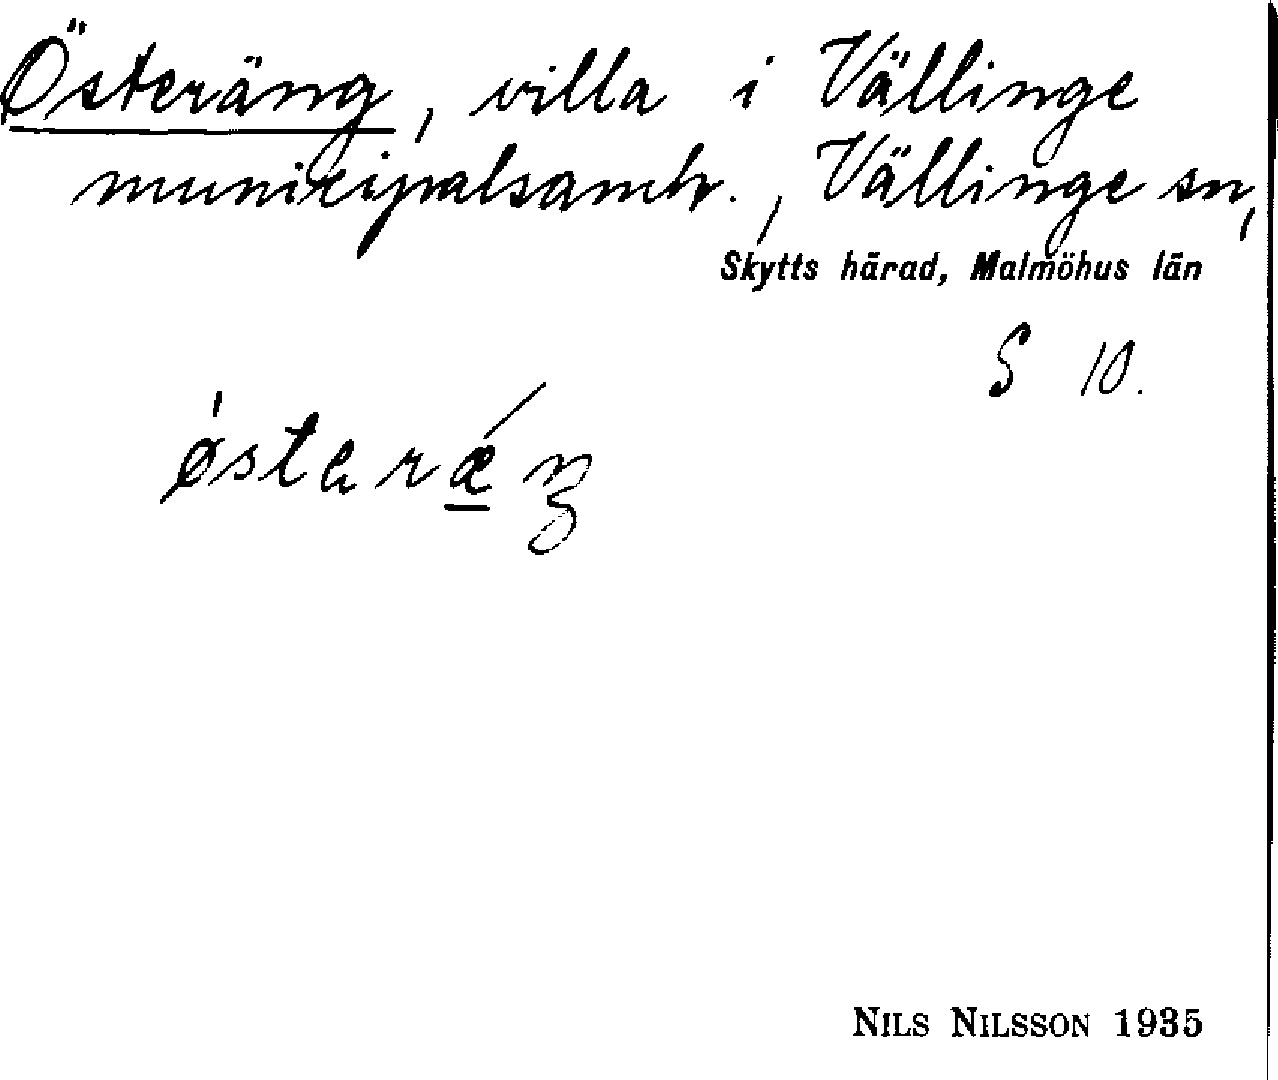 Österäng, villa i Vällinge
municipalsamh., Vällinge sn,
Skytts härad, Malmöhus län
S 10.
NILS NILSSON 1935